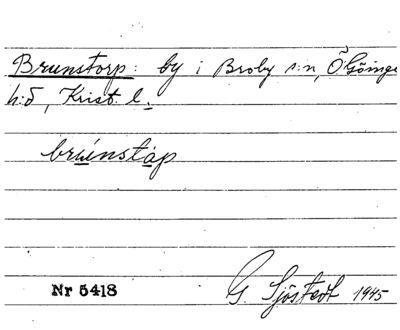 Brunstorp: by i Broby s:n, Ö. Göinge
h:d, Krist. l.
brúnståp
Nr 5418
G. Sjöstedt 1945